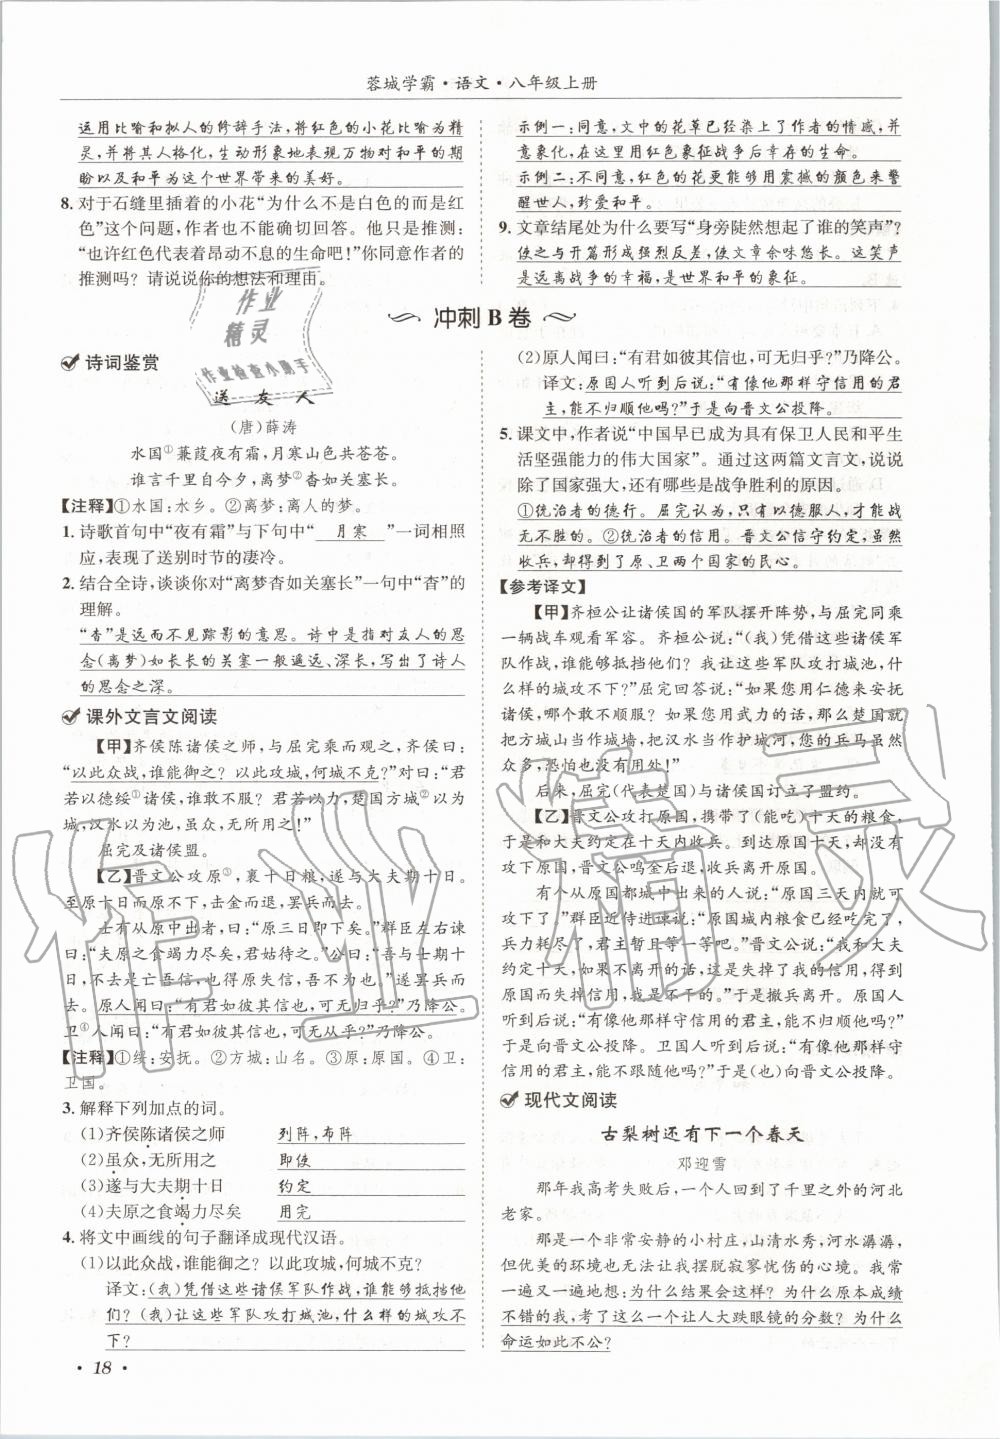 蓉城学霸·语文·八年级上册
运用比喻和拟人的修辞手法,将红色的小花比喻为精
灵,并将其人格化,生动形象地表现万物对和平的期
盼以及和平为这个世界带来的美好。
8. 对于石缝里插着的小花“为什么不是白色的而是红
色”这个问题,作者也不能确切回答。他只是推测:
“也许红色代表着昂动不息的生命吧!”你同意作者的
推测吗?请说说你的想法和理由。
示例一:同意,文中的花草已经染上了作者的情感,并
意象化,在这里用红色象征战争后幸存的生命。
示例二:不同意,红色的花更能够用震撼的颜色来警
醒世人,珍爱和平。
9. 文章结尾处为什么要写“身旁陡然想起了谁的笑声”?
使之与开篇形成强烈反差,使文章余味悠长。这笑声
是远离战争的幸福,是世界和平的象征。
冲刺B卷
诗词鉴赏
作业
精灵
作业检查小助手
送 友 人
(唐)薛涛
水国①蒹葭夜有霜,月寒山色共苍苍。
谁言千里自今夕,离梦②杳如关塞长。
【注释】①水国:水乡。②离梦:离人的梦。
1. 诗歌首句中“夜有霜”与下句中“ 月寒 ”一词相照
应,表现了送别时节的凄冷。
2. 结合全诗,谈谈你对“离梦杳如关塞长”一句中“杳”的
理解。
“杳”是远而不见踪影的意思。诗中是指对友人的思
念(离梦)如长长的关塞一般遥远、深长,写出了诗人
的思念之深。
课外文言文阅读
【甲】齐侯陈诸侯之师,与屈完乘而观之,齐侯曰:
“以此众战,谁能御之?以此攻城,何城不克?”对曰:“君
若以德绥①诸侯,谁敢不服?君若以力,楚国方城②以为
城,汉水以为池,虽众,无所用之!”
屈完及诸侯盟。
【乙】晋文公攻原③,裹十日粮,遂与大夫期十日。
至原十日而原不下,击金而退,罢兵而去。
士有从原中出者,曰:“原三日即下矣。”群臣左右谏
曰:“夫原之食竭力尽矣,君姑待之。”公曰:“吾与士期十
日,不去是亡吾信,也得原失信,吾不为也。”遂罢兵而
去。原人闻曰:“有君如彼其信也,可无归乎?”乃降公。
卫④人闻曰:“有君如彼其信也,可无从乎?”乃降公。
【注释】①绥:安抚。②方城:山名。③原:原国。④卫:
卫国。
3. 解释下列加点的词。
(1)齐侯陈诸侯之师 列阵,布阵
(2)虽众,无所用之 即使
(3)遂与大夫期十日 约定
(4)夫原之食竭力尽矣 用完
4. 将文中画线的句子翻译成现代汉语。
(1)以此众战,谁能御之?以此攻城,何城不克?
译文:(我)凭借这些诸侯军队作战,谁能够抵挡他
们?(我)让这些军队攻打城池,什么样的城攻不
下?
(2)原人闻曰:“有君如彼其信也,可无归乎?”乃降公。
译文:原国人听到后说:“有像他那样守信用的君
主,能不归顺他吗?”于是向晋文公投降。
5. 课文中,作者说“中国早已成为具有保卫人民和平生
活坚强能力的伟大国家”。通过这两篇文言文,说说
除了国家强大,还有哪些是战争胜利的原因。
①统治者的德行。屈完认为,只有以德服人,才能战
无不胜的。②统治者的信用。晋文公信守约定,虽然
收兵,却得到了原、卫两个国家的民心。
【参考译文】
【甲】齐桓公让诸侯国的军队摆开阵势,与屈完同乘
一辆战车观看军容。齐桓公说:“(我)凭借这些诸侯军
队作战,谁能够抵挡他们?我让这些军队攻打城池,什
么样的城攻不下?”屈完回答说:“如果您用仁德来安抚
诸侯,哪个敢不顺服?如果您用武力的话,那么楚国就
把方城山当作城墙,把汉水当作护城河,您的兵马虽然
众多,恐怕也没有用处!”
后来,屈完(代表楚国)与诸侯国订立了盟约。
【乙】晋文公攻打原国,携带了(能吃)十天的粮食,
于是和大夫约定在十天内收兵。到达原国十天,却没有
攻下原国,晋文公鸣金后退,收兵离开原国。
有个从原国都城中出来的人说:“原国三天内就可
攻下了。”群臣近侍进谏说:“原国城内粮食已经吃完了,
兵力耗尽了,君主暂且等一等吧。”晋文公说:“我和大夫
约定十天,如果不离开的话,这是失掉了我的信用。得到
原国而失掉信用,我是不干的。”于是撤兵离开。原国人
听到后说:“有像他那样守信用的君主,能不归顺他吗?”
于是向晋文公投降。卫国人听到后说:“有像他那样守
信用的君主,能不跟随他吗?”于是(也)向晋文公投降。
现代文阅读
古梨树还有下一个春天
邓迎雪
那年我高考失败后,一个人回到了千里之外的河北
老家。
那是一个非常安静的小村庄,山清水秀,河水潺潺,
但优美的环境也无法让我摆脱寂寥忧伤的心境。我常
一遍又一遍地想:为什么结果会这样?为什么原本成绩
不错的我,考了这么一个让人大跌眼镜的分数?为什么
命运如此不公?
· 18 ·
作业精灵